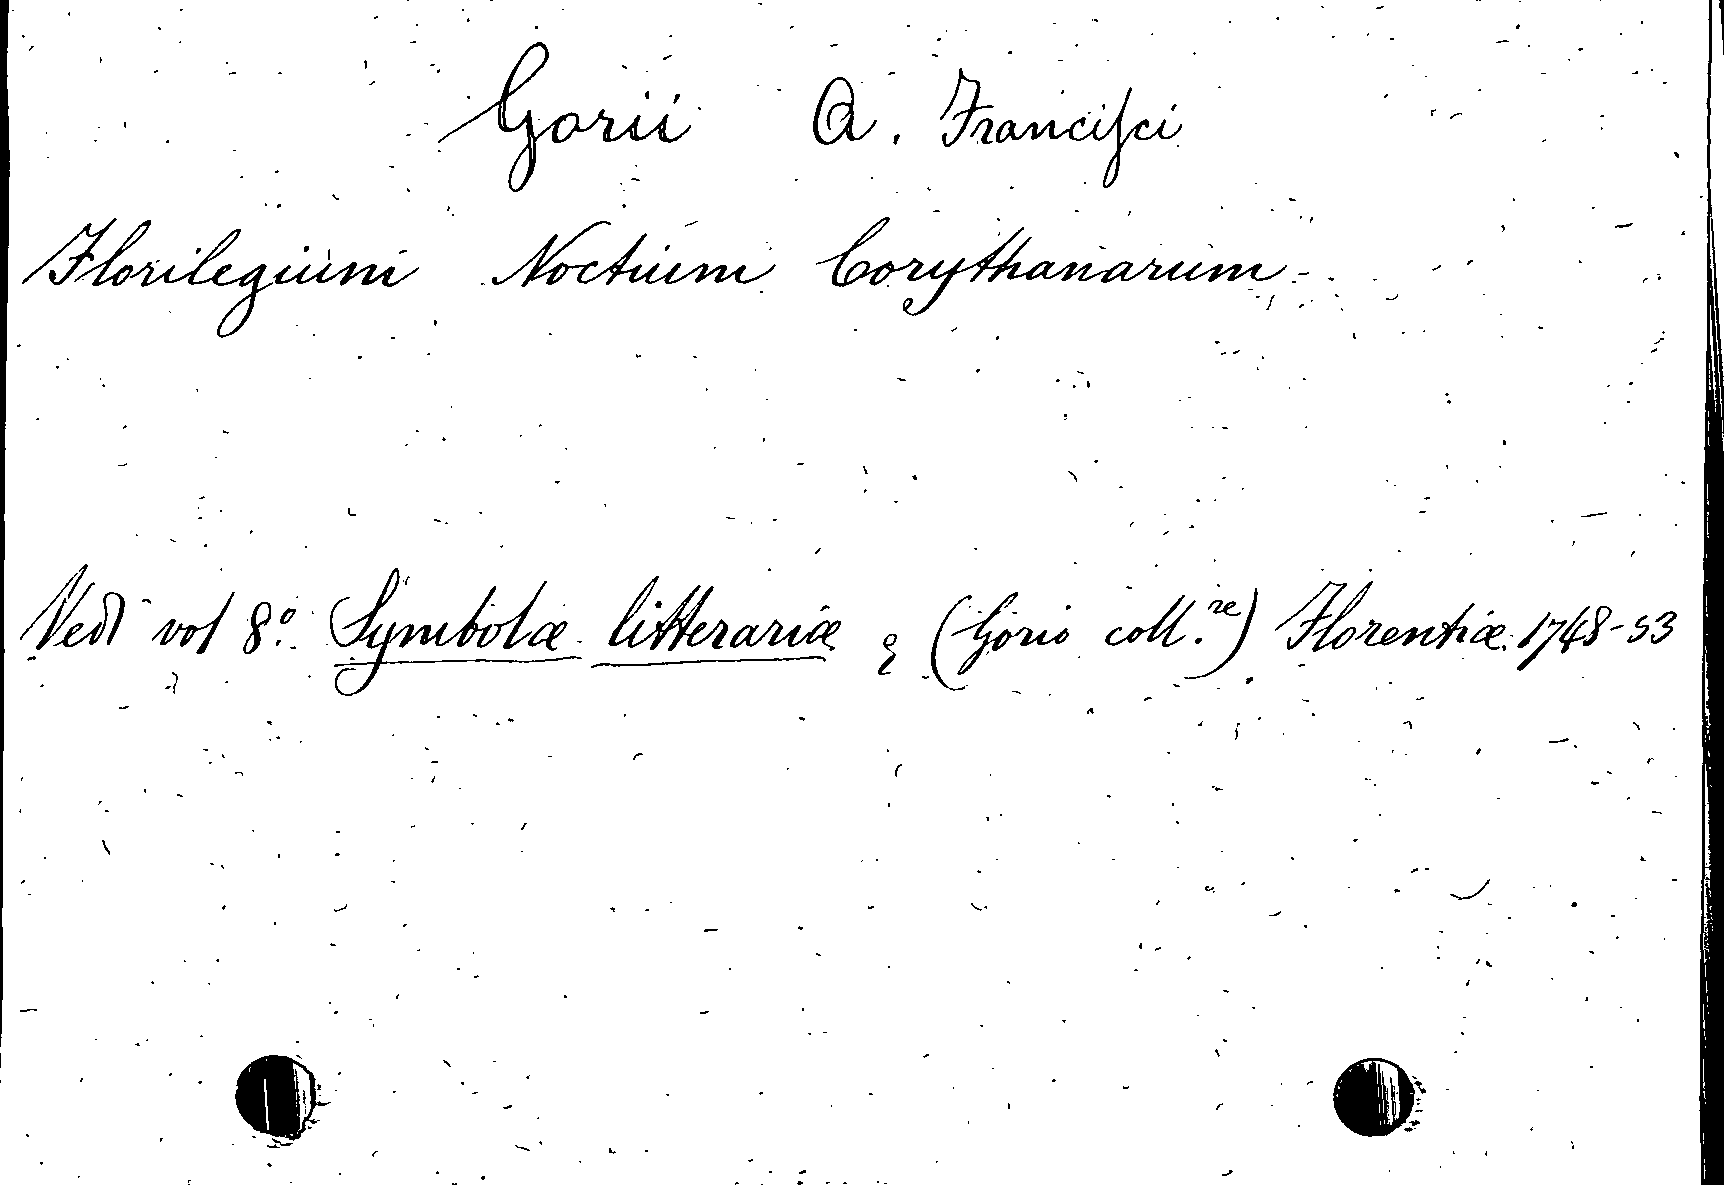 Gorii A. Franciſci
Florilegium Noctium Corythanarum
Vedi vol 8º. Symbolæ litterariæ & (Gorio coll.re) Florentiæ. 1748-53